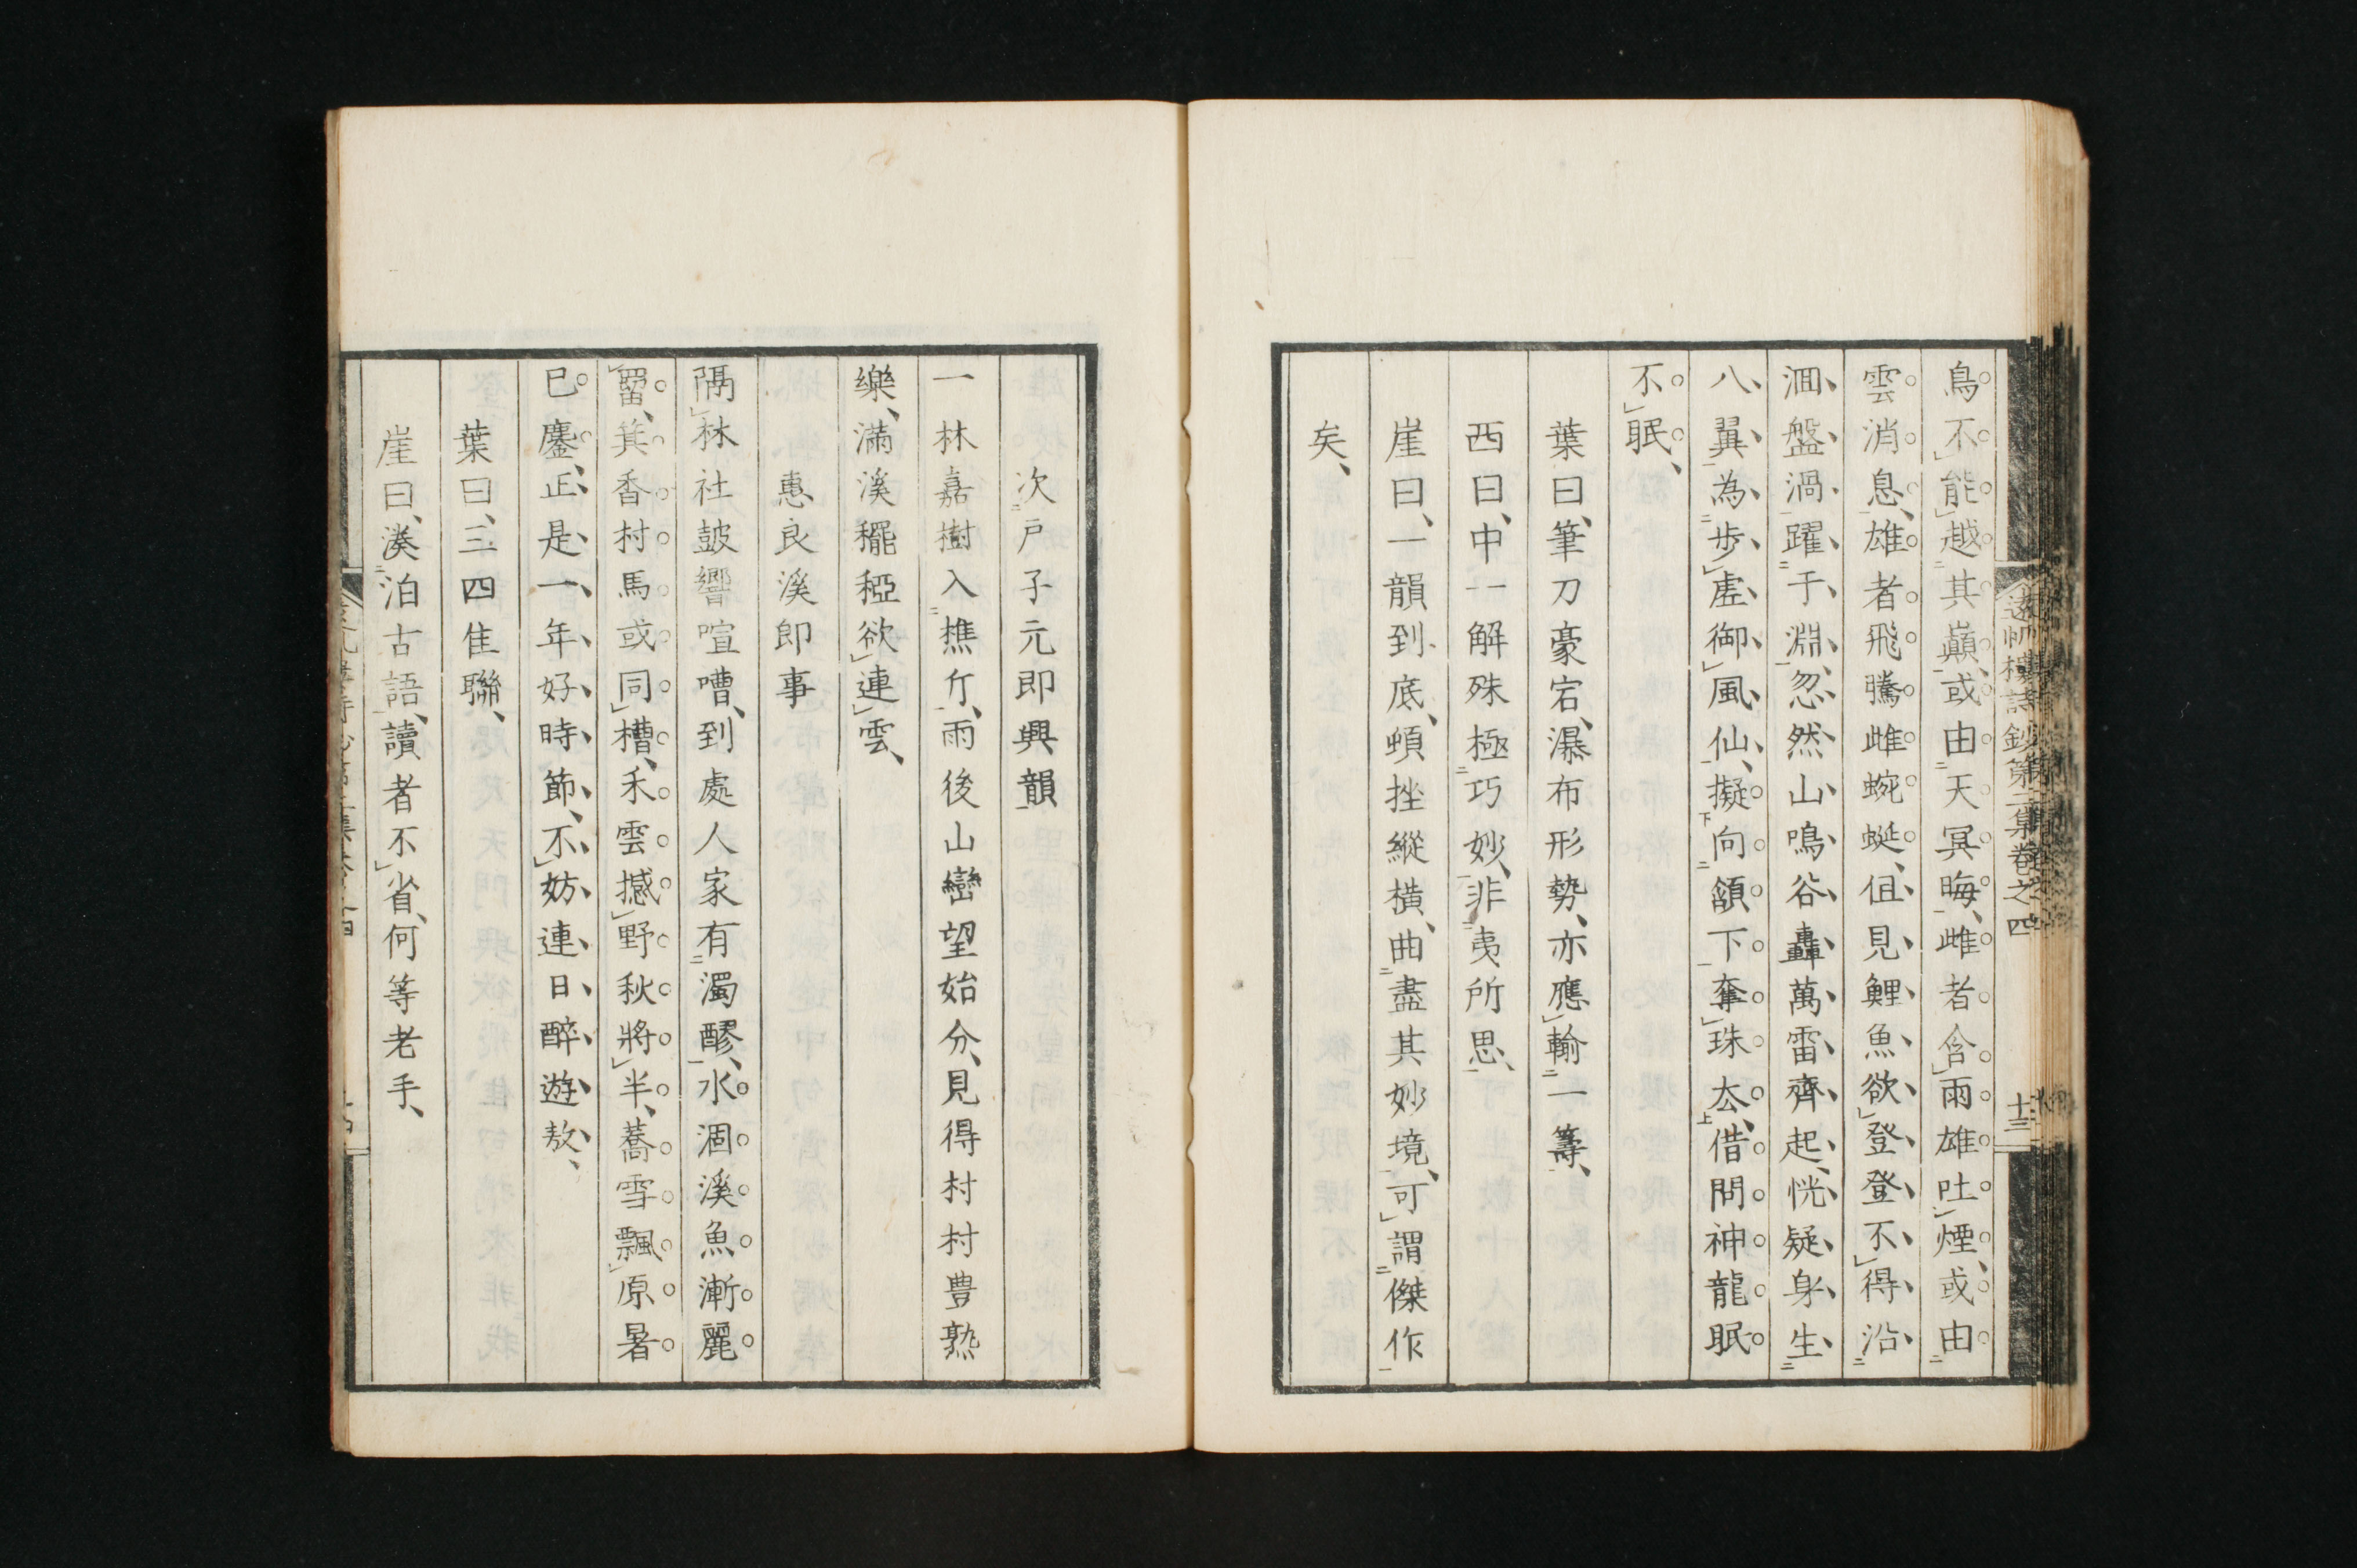 遠帆樓詩鈔第二集卷之四
十三
鳥不能越其巓或由天冥晦雌者含雨雄吐煙或由
雲消息雄者飛騰雌蜿蜒但見鯉魚欲登登不得沿
洄盤渦躍于淵忽然山鳴谷轟萬雷齊起恍疑身生
八翼為步虛御風仙擬向頷下奪珠厺借問神龍眠
不眠
葉曰筆刀豪宕瀑布形勢亦應輸一籌
西曰中一解殊極巧妙非夷所思
崖曰一韻到底頓挫縱橫曲盡其妙境可謂傑作
矣
次戶子元即興韻
一林嘉樹入樵斤雨後山巒望始分見得村村豊熟
樂滿溪䆉稏欲連雲
惠良溪即事
隔林社皷響喧嘈到處人家有濁醪水涸溪魚漸麗
罶箕香村馬或同槽禾雲撼野秋將半蕎雪飄原暑
已鏖正是一年好時節不妨連日醉遊敖
葉曰三四隹聯
崖曰湊泊古語讀者不省何等老手